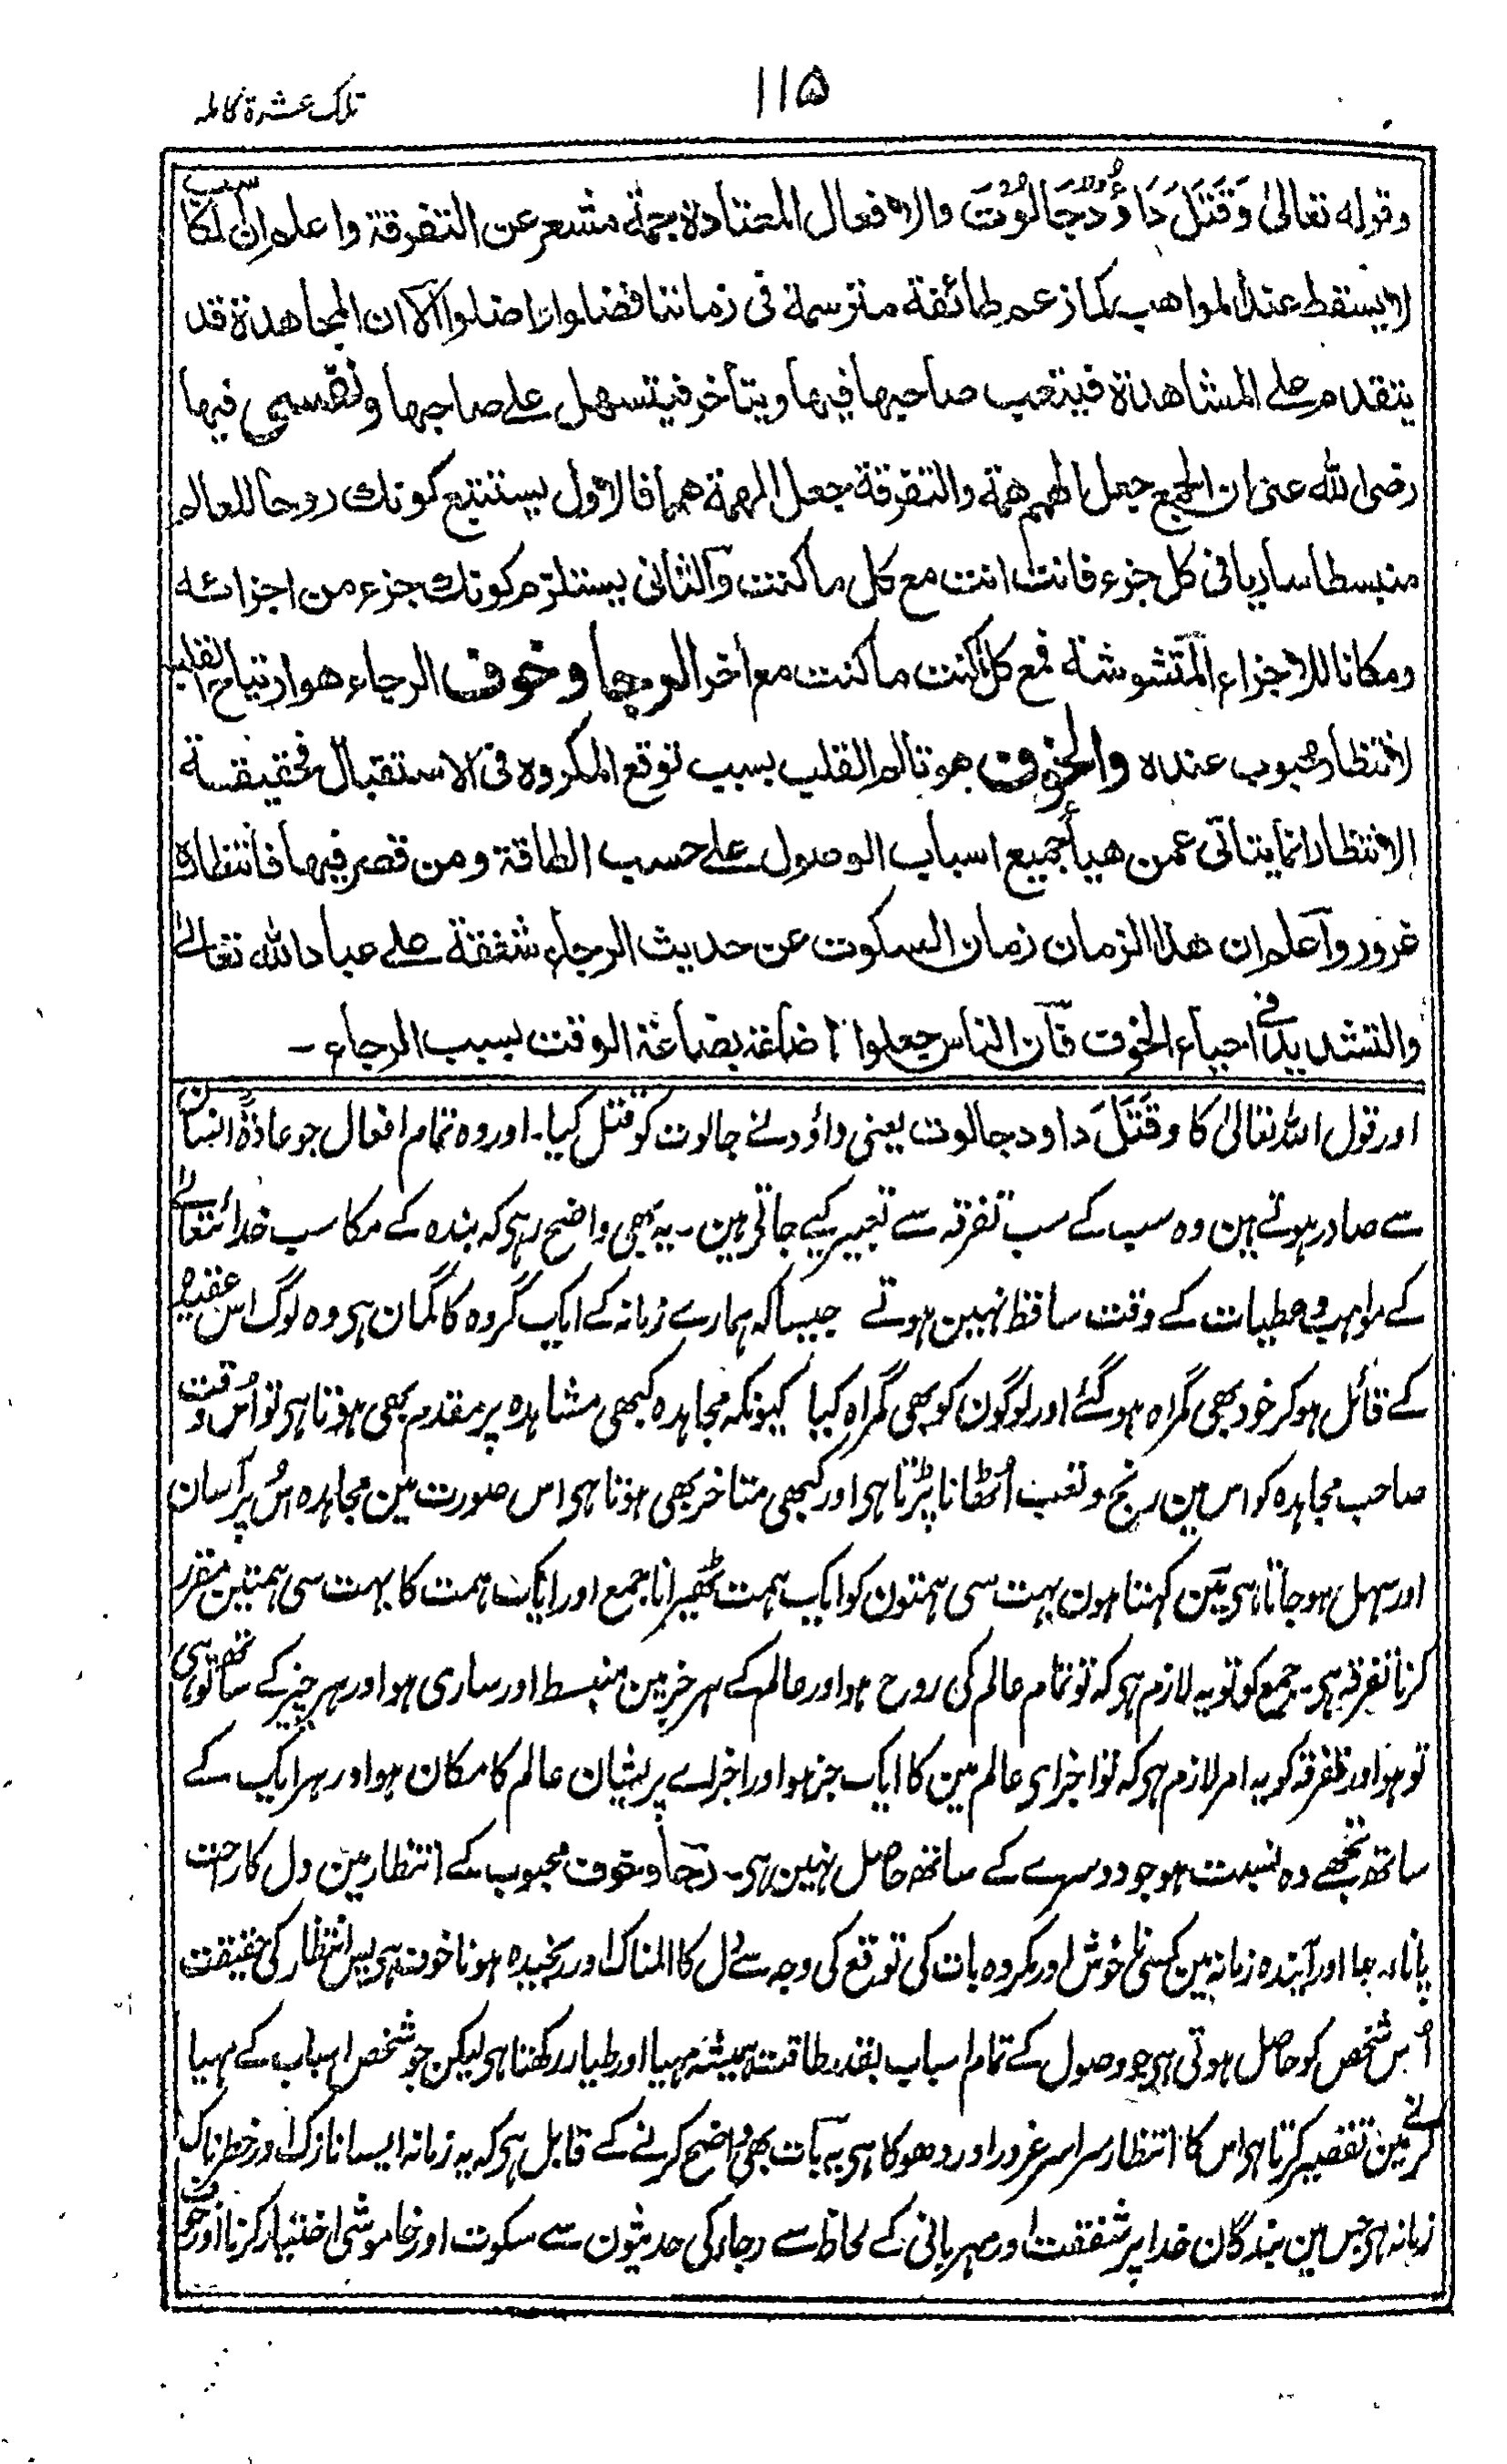 ۱۱۵
تلک عشرۃ کاملہ
وقوله تعالیٰ وَقَتَلَ دَاؤُدُ جَالُوْتَ والافعال المعتادة بجملة مشعر عن التفرقة واعلم ان المکاسب
لا یسقط عند المواهب کما زعم طائفة مترسمة فی زماننا فضلوا واضلوا الآ ان المجاهدة قد
یتقدم علے المشاهدة فیتعب صاحبها فیها ویتاخر فیتسهل علے صاحبها ونفسی فیها
رضی الله عنی ان الجمع جعل الهمم همة والتفرقة جعل الهمة همما فالاول یستتبع کونك روحا للعالم
منبسطا ساریا فی کل جزء فانت انت مع کل ما کنت وآلثانی یستلزم کونك جزء من اجزائه
ومکانا للاجزاء المتشوشة فمع کل کنت ما کنت مع اخر الرجا وخوف الرجاء هو ارتیاح القلب
لانتظار محبوب عنده والخوف هو تالم القلب بسبب توقع المکروه فی الاستقبال فحقیقة
الانتظار انما یتاتی عمن هیأ جمیع اسباب الوصول علے حسب الطاقة ومن قصر فیها فانتظاره
غرور وآعلم ان هذا الزمان زمان السکوت عن حدیث الرجاء شفقة علے عباد الله تعالے
والتشدید فی احیاء الخوف فآن الناس جعلوا اضاعة بضاعة الوقت بسبب الرجاء ۔
اور قول اللہ تعالیٰ کا وقَتَلَ داود جالوت یعنی داؤد نے جالوت کو قتل کیا۔ اور وہ تمام افعال جو عادۃً انسان
سے صادر ہوتے ہین وہ سب کے سب تفرقہ سے تعبیر کیے جاتی ہین ۔ یہ بھی واضح رہی کہ بندہ کے مکاسب خدائتعالیٰ
کے مواہب و عطیات کے وقت ساقط نہین ہوتے جیسا کہ ہمارے زمانہ کے ایک گروہ کا گمان ہی وہ لوگ اس عقیدہ
کے قائل ہو کر خود بھی گمراہ ہو گئے اور لوگون کو بھی گمراہ کیا کیونکہ مجاہدہ کبھی مشاہدہ پر مقدم بھی ہوتا ہی تو اُس وقت
صاحب مجاہدہ کو اس مین رنج و تعب اُٹھانا پڑتا ہی اور کبھی متاخر بھی ہوتا ہی اس صورت مین مجاہدہ اُس پر آسان
اور سہل ہو جاتا ہی مین کہتا ہون بہت سی ہمتون کو ایک ہمت ٹھیرانا جمع اور ایک ہمت کا بہت سی ہمتین مقرر
کرنا تفرقہ ہی ۔ جمع کو تو یہ لازم ہی کہ تو تمام عالم کی روح ہو اور عالم کے ہر جز مین منبسط اور ساری ہو اور ہر چیز کے ساتھ تو ہی
تو ہو اور تفرقہ کو یہ امر لازم ہی کہ تو اجزای عالم مین کا ایک جز ہو اور اجزاے پریشان عالم کا مکان ہو اور ہر ایک کے
ساتھ تجھے وہ نسبت ہو جو دوسرے کے ساتھ حاصل نہین رہی ۔ رجا وخوف محبوب کے انتظار مین دل کا راحت
پانا رجا اور آیندہ زمانہ مین کسی ناخوش اور مکروہ بات کی توقع کی وجہ سے دل کا المناک اور رنجیدہ ہونا خوف ہی پس انتظار کی حقیقت
اُس شخص کو حاصل ہوتی ہی جو وصول کے تمام اسباب بقدر طاقت ہمیشہ مہیا اور طیار رکھتا ہی لیکن جو شخص اسباب کے مہیا
کرنے مین تقصیر کرتا ہی اس کا انتظار سراسر غرور اور دھوکا ہی یہ بات بھی واضح کرنے کے قابل ہی کہ یہ زمانہ ایسا نازک اور خطرناک
زمانہ ہی جس مین بندگان خدا پر شفقت اور مہربانی کے لحاظ سے رجا کی حدیثون سے سکوت اور خاموشی اختیار کرنا اور خوف